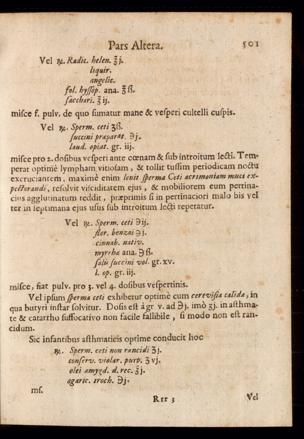 Pars Altera. 501
Vel ℞. Radic. helen. ℥j.
liquir.
angelic.
fol. hyssop. ana. ʒß.
sacchari. ℥ij.
misce f. pulv. de quo sumatur mane & vesperi cultelli cuspis.
Vel ℞. Sperm. ceti ʒß.
succini præparat. ℈j.
laud. opiat. gr. iij.
misce pro 2. dosibus vesperi ante cœnam & sub introitum lecti. Tem-
perat optimè lympham vitiosam, & tollit tussim periodicam noctu
excruciantem, maximè enim lenit sperma Ceti acrimoniam muci ex-
pectorandi, resolvit visciditatem ejus, & mobiliorem eum pertina-
cius agglutinatum reddit, præprimis si in pertinaciori malo bis vel
ter in septimana ejus usus sub introitum lecti repetatur.
Vel ℞. Sperm. ceti ℈ij.
flor. benzai ℈j.
cinnab. nativ.
myrrhæ ana. ℈ß.
salis succini vol. gr. xv.
l. op. gr. iij.
misce, fiat pulv. pro 3. vel 4. dosibus vespertinis.
Vel ipsum sperma ceti exhibetur optimè cum cerevisia calida, in
qua butyri instar solvitur. Dosis est à gr v. ad ℈j. imò ʒj. in asthma-
te & catarrho suffocativo non facile fallibile, si modo non est ran-
cidum.
Sic infantibus asthmaticis optime conducit hoc
℞. Sperm. ceti non rancidi ʒj.
conserv. violar. purp. ʒvj.
olei amygd. d. rec. ℥j.
agaric. troch. ℈j.
ms.
Rrr 3 Vel